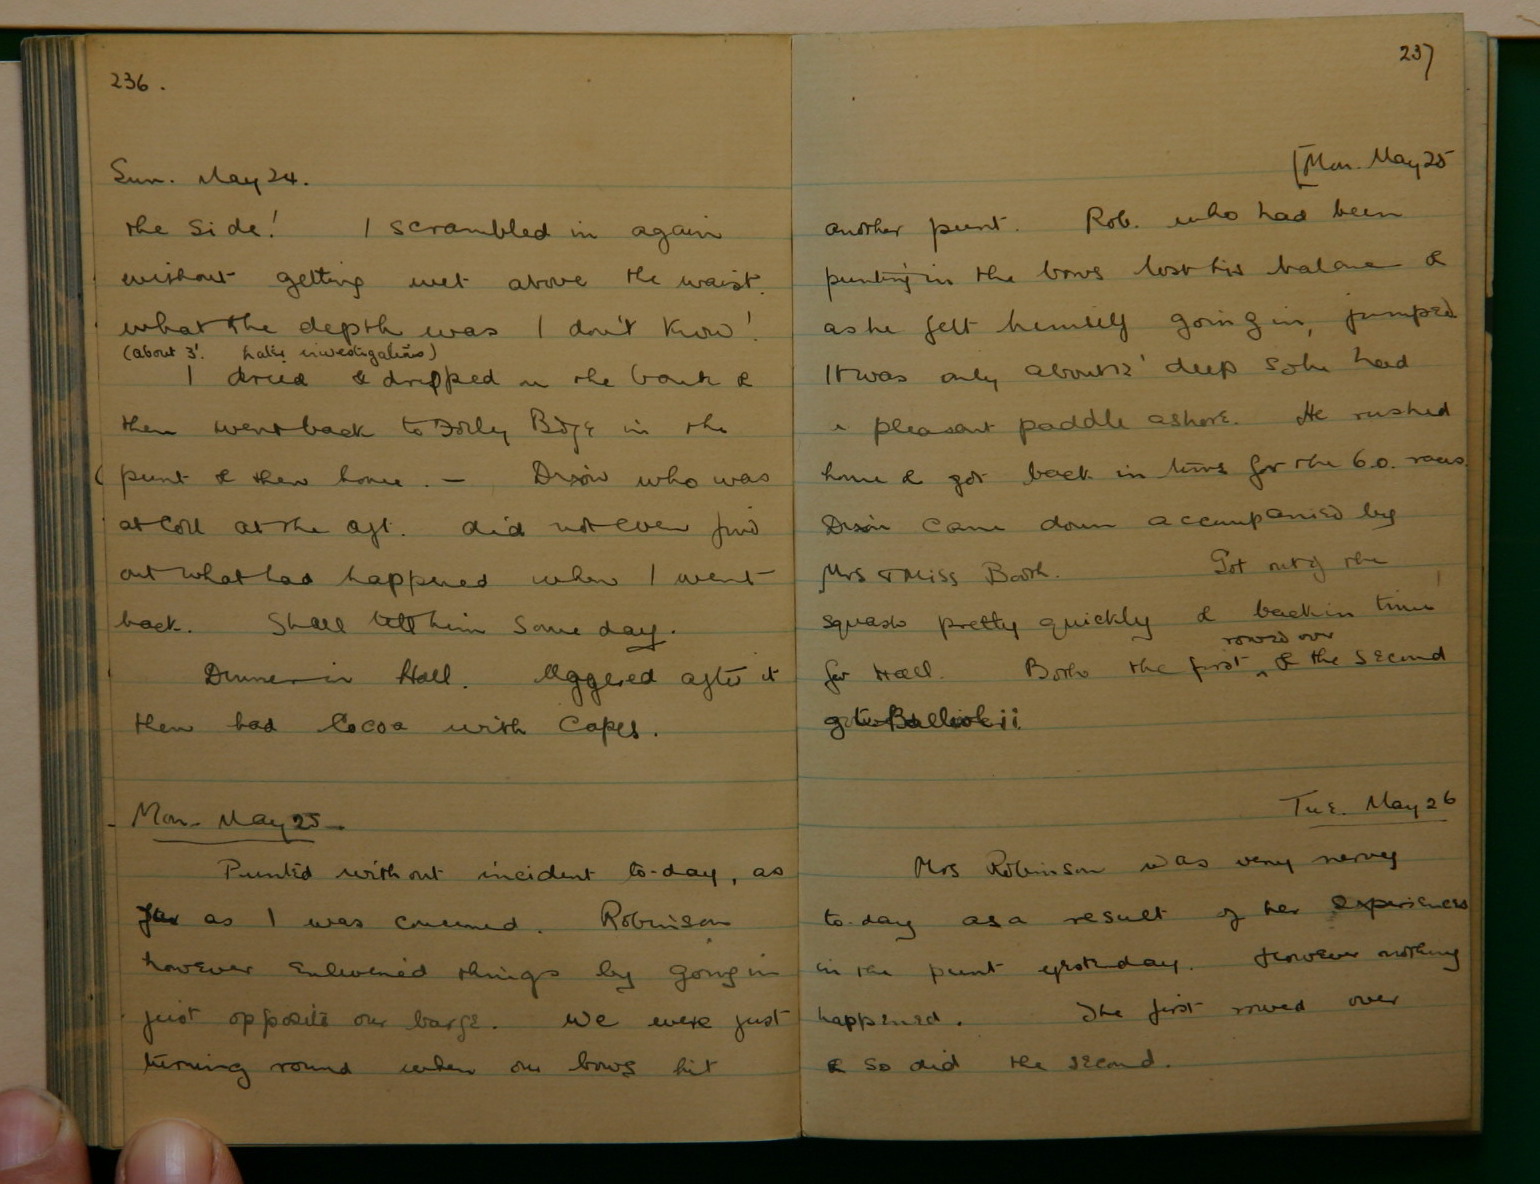 236.
Sun. May 24.
the side! I scrambled in again
without getting wet above the waist.
what the depth was I don't know!
(about 3'. later investigations)
I dried & dripped on the bank &
then went back to Folly Bdge in the
punt & then home. — Dixon who was
at Coll at the aft. did not even find
out what had happened when I went
back. Shall tell him some day.
Dinner in Hall. Uggered after it
then had Cocoa with Capes.
Mon. May 25.
Punted without incident to-day, as
far as I was concerned. Robinson
however enlivened things by going in
just opposite our barge. We were just
turning round when our bows hit
237
[Mon. May 25
another punt. Rob. who had been
punting in the bows lost his balance &
as he felt himself going in, jumped
It was only about 2' deep so he had
a pleasant paddle ashore. He rushed
home & got back in time for the 6.0. races.
Dixon came down accompanied by
Mrs & Miss Booth. Got out of the
squash pretty quickly & back in time
rowed over
for Hall. Both the first ^ & the second
Balliol ii
Tue. May 26
Mrs Robinson was very nervy
to-day as a result of her experiences
in the punt yesterday. However nothing
happened. The first rowed over
& so did the second.